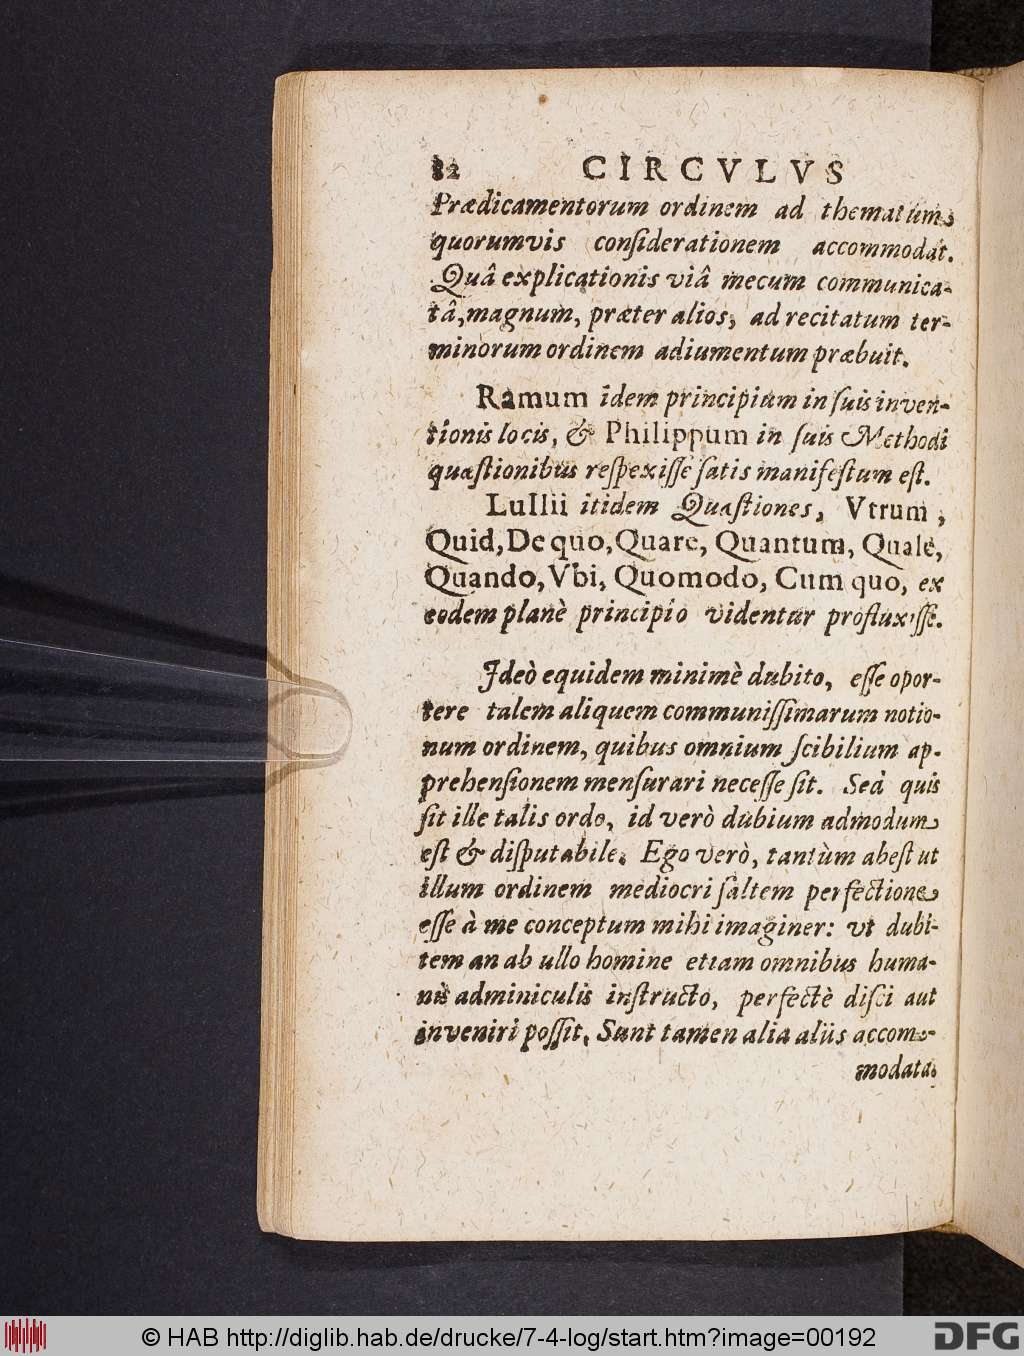 82 CIRCVLVS
Prædicamentorum ordinem ad thematum
quorumvis conſiderationem accommodat.
Quâ explicationis viâ mecum communica-
tâ, magnum, præter alios, ad recitatum ter-
minorum ordinem adiumentum præbuit.
Ramum idem principium in ſuis inven-
tionis locis, & Philippum in ſuis Methodi
quæſtionibus reſpexiſſe ſatis manifeſtum eſt.
Lullii itidem Quæſtiones, Vtrum,
Quid, De quo, Quare, Quantum, Quale,
Quando, Vbi, Quomodo, Cum quo, ex
eodem planè principio videntur profluxiſſe.
Ideò equidem minimè dubito, eſſe opor-
tere talem aliquem communiſſimarum notio-
num ordinem, quibus omnium ſcibilium ap-
prehenſionem menſurari neceſſe ſit. Sed quis
ſit ille talis ordo, id verò dubium admodum
eſt & diſputabile. Ego verò, tantùm abeſt ut
illum ordinem mediocri ſaltem perfectione
eſſe à me conceptum mihi imaginer: vt dubi-
tem an ab ullo homine etiam omnibus huma-
nis adminiculis inſtructo, perfectè diſci aut
inveniri poſſit. Sunt tamen alia aliis accom-
modata
© HAB http://diglib.hab.de/drucke/7-4-log/start.htm?image=00192
DFG